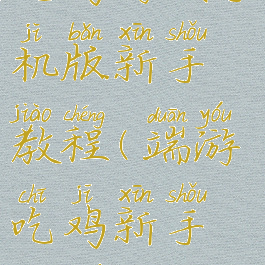 jī bǎn xīn shǒu
机版新手
jiào chéng duān yóu
教程(端游
chī jī xīn shǒu
吃鸡新手